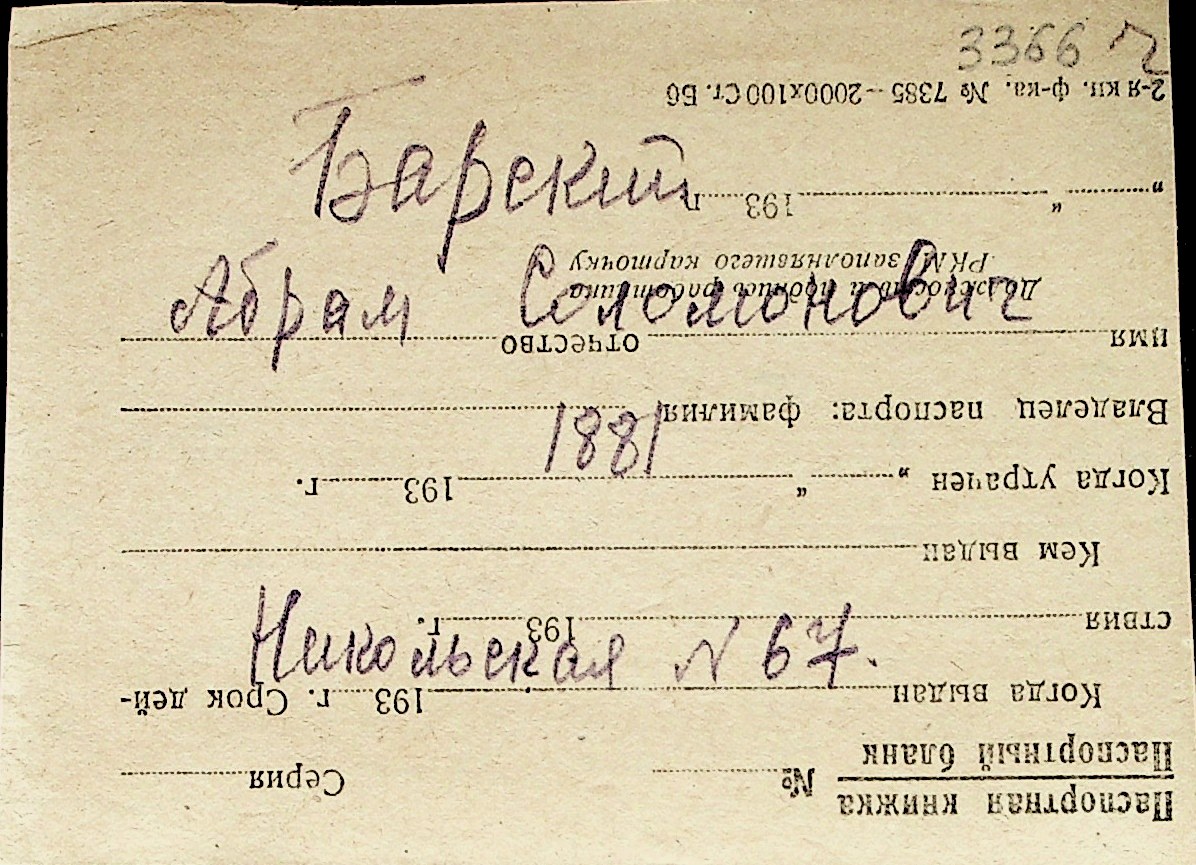 3366
Барский
Абрам Соломонович
1881
Никольская N 67.
Паспортная книжка
Паспортный бланк
№ Серия
Когда выдан 193 г. Срок дей-
ствия 193 г.
Кем выдан
Когда утрачен „ “ 193 г.
Владелец паспорта: фамилия
имя отчество
Должность и подпись работника
РКМ, заполнявшего карточку
„ “ 193 г.
2-я кн. ф-ка. № 7385—2000х100 Ст. Б6